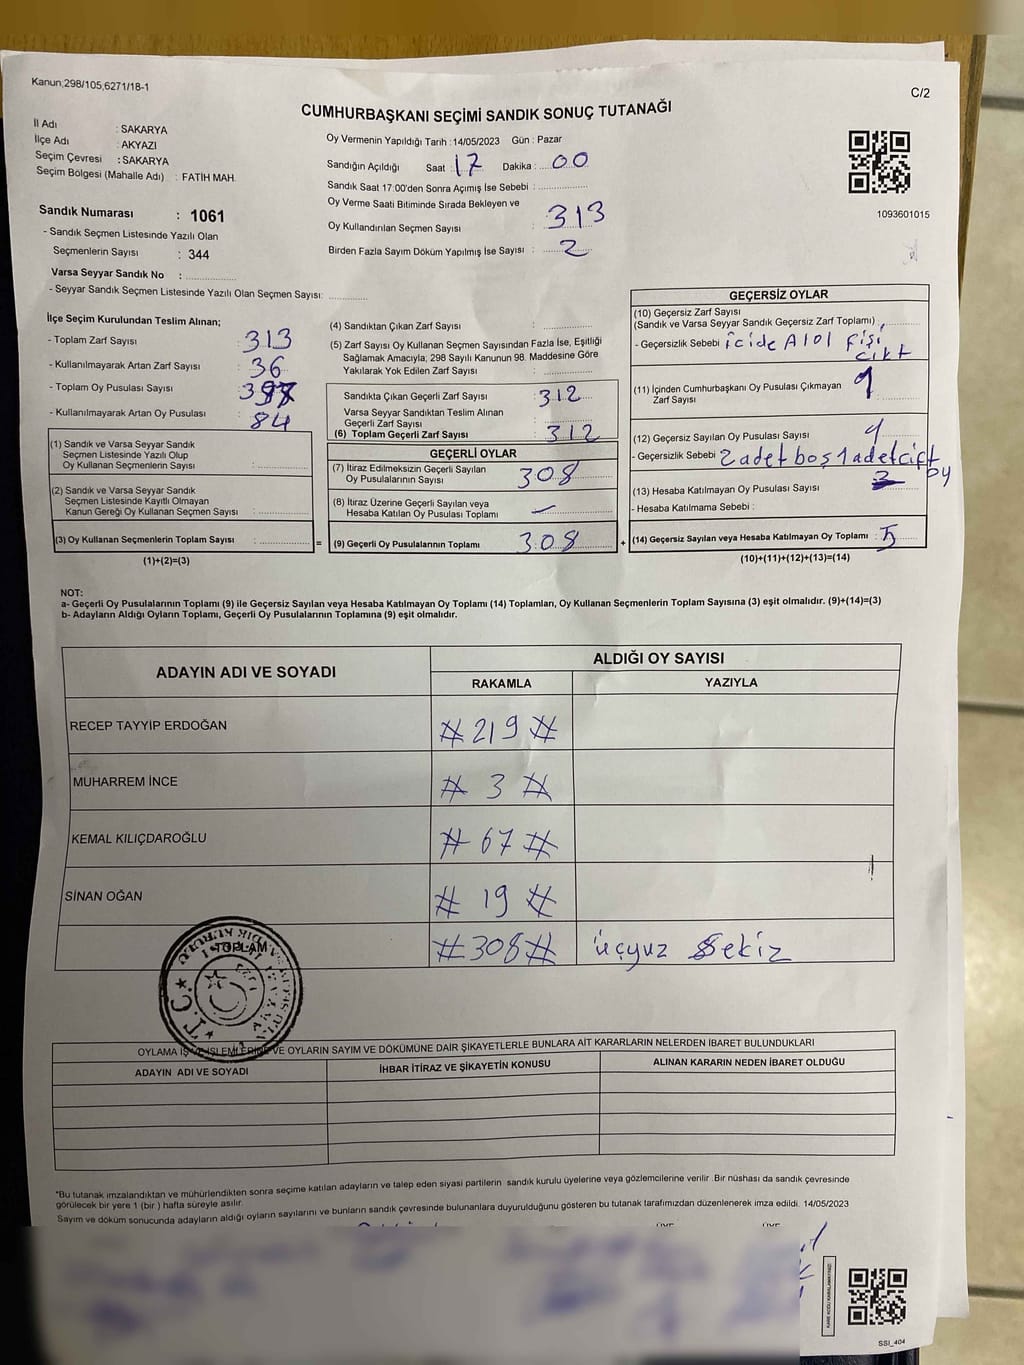 Kanun;298/105,6271/18-1
C/2
CUMHURBAŞKANI SEÇİMİ SANDIK SONUÇ TUTANAĞI
İl Adı : SAKARYA
İlçe Adı : AKYAZI
Seçim Çevresi : SAKARYA
Seçim Bölgesi (Mahalle Adı) : FATİH MAH.
Sandık Numarası : 1061
- Sandık Seçmen Listesinde Yazılı Olan
Seçmenlerin Sayısı : 344
Varsa Seyyar Sandık No :
- Seyyar Sandık Seçmen Listesinde Yazılı Olan Seçmen Sayısı:
Oy Vermenin Yapıldığı Tarih :14/05/2023 Gün : Pazar
Sandığın Açıldığı Saat : 17 Dakika : 00
Sandık Saat 17:00'den Sonra Açımış İse Sebebi :
Oy Verme Saati Bitiminde Sırada Bekleyen ve
Oy Kullandırılan Seçmen Sayısı : 313
Birden Fazla Sayım Döküm Yapılmış İse Sayısı : 2
1093601015
İlçe Seçim Kurulundan Teslim Alınan;
- Toplam Zarf Sayısı : 313
- Kullanılmayarak Artan Zarf Sayısı : 36
- Toplam Oy Pusulası Sayısı :
- Kullanılmayarak Artan Oy Pusulası : 84
(1) Sandık ve Varsa Seyyar Sandık
Seçmen Listesinde Yazılı Olup
Oy Kullanan Seçmenlerin Sayısı :
(2) Sandık ve Varsa Seyyar Sandık
Seçmen Listesinde Kayıtlı Olmayan
Kanun Gereği Oy Kullanan Seçmen Sayısı :
(3) Oy Kullanan Seçmenlerin Toplam Sayısı :
=
(1)+(2)=(3)
(4) Sandıktan Çıkan Zarf Sayısı :
(5) Zarf Sayısı Oy Kullanan Seçmen Sayısından Fazla İse, Eşitliği
Sağlamak Amacıyla; 298 Sayılı Kanunun 98. Maddesine Göre
Yakılarak Yok Edilen Zarf Sayısı :
Sandıkta Çıkan Geçerli Zarf Sayısı : 312
Varsa Seyyar Sandıktan Teslim Alınan
Geçerli Zarf Sayısı :
(6) Toplam Geçerli Zarf Sayısı : 312
GEÇERLİ OYLAR
(7) İtiraz Edilmeksizin Geçerli Sayılan
Oy Pusulalarının Sayısı : 308
(8) İtiraz Üzerine Geçerli Sayılan veya
Hesaba Katılan Oy Pusulası Toplamı : —
(9) Geçerli Oy Pusulalarının Toplamı : 308
+
GEÇERSİZ OYLAR
(10) Geçersiz Zarf Sayısı
(Sandık ve Varsa Seyyar Sandık Geçersiz Zarf Toplamı) :
- Geçersizlik Sebebi : içide A101 fişi
çıktı
(11) İçinden Cumhurbaşkanı Oy Pusulası Çıkmayan
Zarf Sayısı
(12) Geçersiz Sayılan Oy Pusulası Sayısı :
- Geçersizlik Sebebi : 2 adet boş 1 adet çift
oy
(13) Hesaba Katılmayan Oy Pusulası Sayısı :
- Hesaba Katılmama Sebebi :
(14) Geçersiz Sayılan veya Hesaba Katılmayan Oy Toplamı : 5
(10)+(11)+(12)+(13)=(14)
NOT:
a- Geçerli Oy Pusulalarının Toplamı (9) ile Geçersiz Sayılan veya Hesaba Katılmayan Oy Toplamı (14) Toplamları, Oy Kullanan Seçmenlerin Toplam Sayısına (3) eşit olmalıdır. (9)+(14)=(3)
b- Adayların Aldığı Oyların Toplamı, Geçerli Oy Pusulalarının Toplamına (9) eşit olmalıdır.
ADAYIN ADI VE SOYADI
ALDIĞI OY SAYISI
RAKAMLA YAZIYLA
RECEP TAYYİP ERDOĞAN # 219 #
MUHARREM İNCE # 3 #
KEMAL KILIÇDAROĞLU # 67 #
SİNAN OĞAN # 19 #
TOPLAM # 308 # üçyuz Sekiz
T.C.
OYLAMA İŞ VE İŞLEMLERİNE VE OYLARIN SAYIM VE DÖKÜMÜNE DAİR ŞİKAYETLERLE BUNLARA AİT KARARLARIN NELERDEN İBARET BULUNDUKLARI
ADAYIN ADI VE SOYADI İHBAR İTİRAZ VE ŞİKAYETİN KONUSU ALINAN KARARIN NEDEN İBARET OLDUĞU
*Bu tutanak imzalandıktan ve mühürlendikten sonra seçime katılan adayların ve talep eden siyasi partilerin sandık kurulu üyelerine veya gözlemcilerine verilir .Bir nüshası da sandık çevresinde
görülecek bir yere 1 (bir ) hafta süreyle asılır.
Sayım ve döküm sonucunda adayların aldığı oyların sayılarını ve bunların sandık çevresinde bulunanlara duyurulduğunu gösteren bu tutanak tarafımızdan düzenlenerek imza edildi. 14/05/2023
SSİ_404